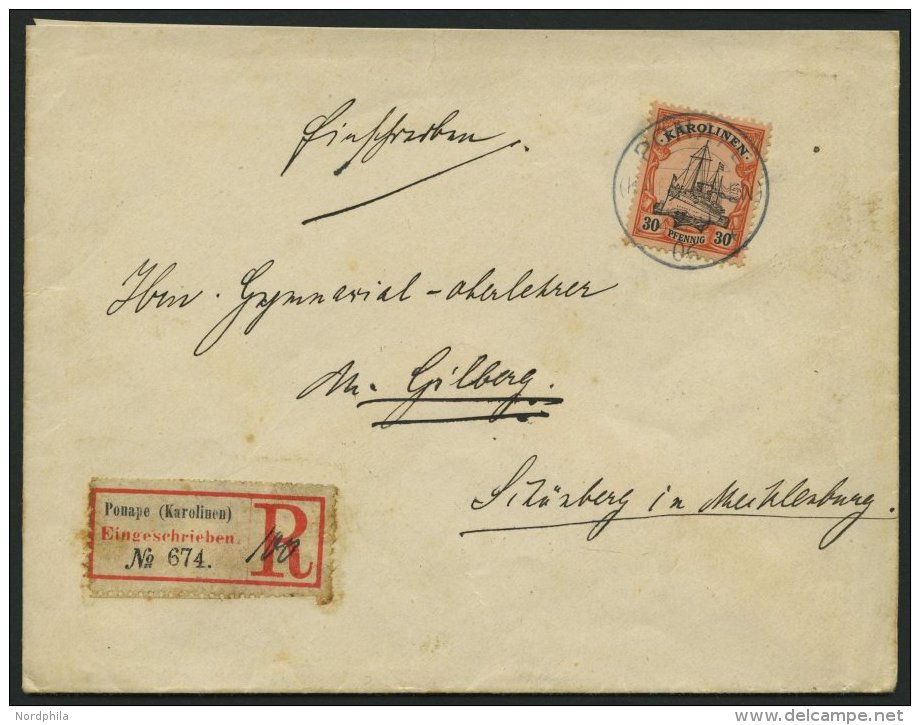 Einschreiben.
KAROLINEN
30 30
PFENNIG
06
Hrn. Gymnasial-oberlehrer
M. Gilberg.
Schönberg in Mecklenburg.
Ponape (Karolinen)
Eingeschrieben.
№ 674.
R
100
Nordphila
delcampe.net